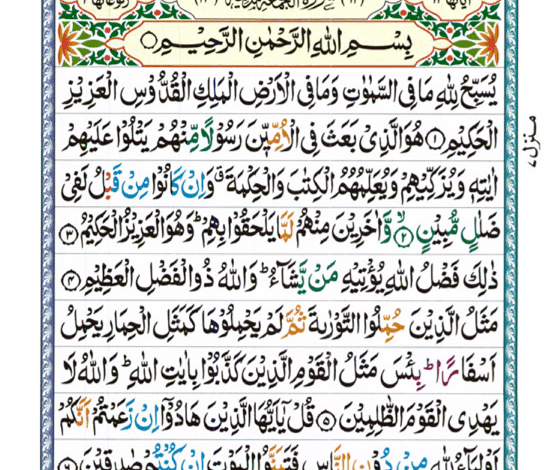 بِسْمِ اللهِ الرَّحْمٰنِ الرَّحِيْمِ
يُسَبِّحُ لِلّٰهِ مَا فِى السَّمٰوٰتِ وَمَا فِى الْاَرْضِ الْمَلِكِ الْقُدُّوْسِ الْعَزِيْزِ
الْحَكِيْمِ ۝۱ هُوَ الَّذِىْ بَعَثَ فِى الْاُمِّيّٖنَ رَسُوْلًا مِّنْهُمْ يَتْلُوْا عَلَيْهِمْ
اٰيٰتِهٖ وَيُزَكِّيْهِمْ وَيُعَلِّمُهُمُ الْكِتٰبَ وَالْحِكْمَةَ ۗ وَاِنْ كَانُوْا مِنْ قَبْلُ لَفِىْ
ضَلٰلٍ مُّبِيْنٍ ۝۲ وَّاٰخَرِيْنَ مِنْهُمْ لَمَّا يَلْحَقُوْا بِهِمْ ؕ وَهُوَ الْعَزِيْزُ الْحَكِيْمُ ۝۳
ذٰلِكَ فَضْلُ اللهِ يُؤْتِيْهِ مَنْ يَّشَآءُ ؕ وَاللهُ ذُو الْفَضْلِ الْعَظِيْمِ ۝۴
مَثَلُ الَّذِيْنَ حُمِّلُوا التَّوْرٰىةَ ثُمَّ لَمْ يَحْمِلُوْهَا كَمَثَلِ الْحِمَارِ يَحْمِلُ
اَسْفَارًا ؕ بِئْسَ مَثَلُ الْقَوْمِ الَّذِيْنَ كَذَّبُوْا بِاٰيٰتِ اللهِ ؕ وَاللهُ لَا
يَهْدِى الْقَوْمَ الظّٰلِمِيْنَ ۝۵ قُلْ يٰۤاَيُّهَا الَّذِيْنَ هَادُوْۤا اِنْ زَعَمْتُمْ اَنَّكُمْ
اَوْلِيَآءُ لِلّٰهِ مِنْ دُوْنِ النَّاسِ فَتَمَنَّوُا الْمَوْتَ اِنْ كُنْتُمْ صٰدِقِيْنَ ۝۶
منزل ۷